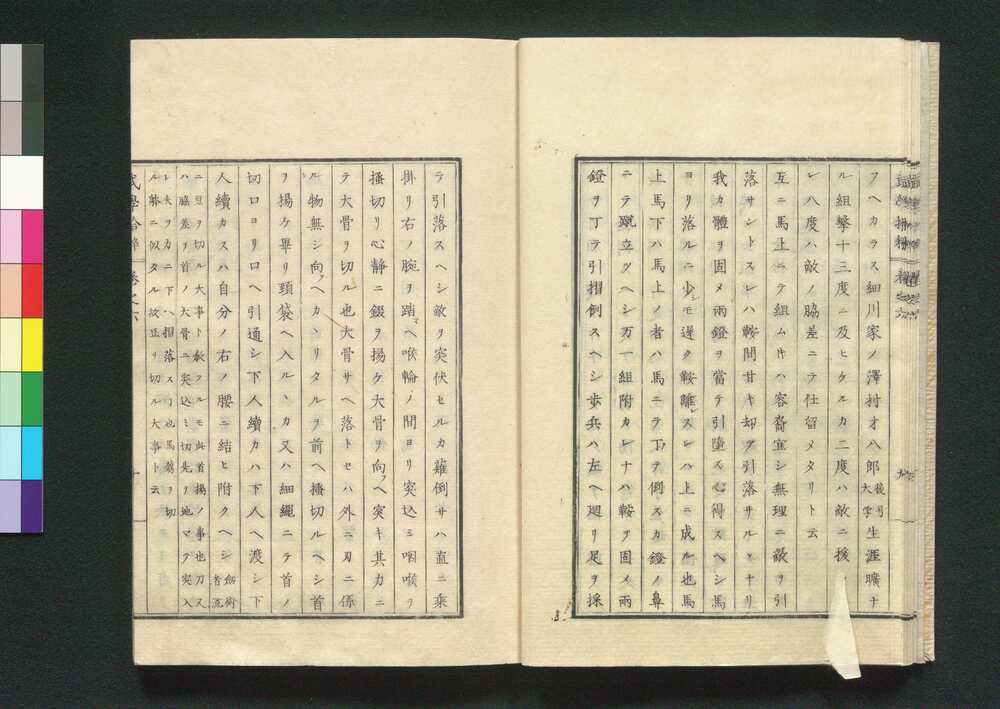 フヘカラス細川家ノ澤村才八郎後号大学生涯曠ナ
ル組撃十三度ニ及ヒケルカ二度ハ敵ニ援
レ八度ハ敵ノ脇差ニテ仕留メタリト云
互ニ馬上ニテ組ムキハ容易宜シ無理ニ敵ヲ引
落サントスレハ鞍間甘キ却テ引落サルヽナリ
我カ體ヲ固メ兩鐙ヲ當テ引墮ス心得スヘシ馬
ヨリ落ルニ少シモ遅ク鞍離レスレハ上ニ成ル也馬
上馬下ハ馬上ノ者ハ馬ニテ丁テ倒スカ鐙ノ鼻
ニテ蹴立ツヘシ万一組附カレナハ鞍ヲ固メ兩
鐙ヲ丁テ引摺倒スヘシ歩兵ハ左ヘ廻リ足ヲ採
テ引落スヘシ敵ヲ突伏セルカ薙倒サハ直ニ乘
掛リ右ノ腕ヲ踏マヘ喉輪ノ間ヨリ突込ミ咽喉ヲ
搔切リ心静ニ錣ヲ揚ケ大骨ヲ向フヘ突キ其カニ
テ大骨ヲ切ル也大骨サヘ落トセハ外ニ刃ニ係
ル物無シ向フヘカヽリタルヲ前ヘ搔切ルヘシ首
ヲ揚ケ畢リ頸袋ヘ入ルヽカ又ハ細繩ニテ首ノ
切口ヨリ口ヘ引通シ下人續カハ下人ヘ渡シ下
人續カスハ自分ノ右ノ腰ニ結ヒ附クヘシ劔術者流
ニ豆ヲ切ル大事ト敎フルモ此首揚ノ事也刀又
ハ脇差ヲ首ノ大骨ニ突込ミ切先ヲ地マテ突入
ト大ヲカニ下ハ摺落ス也馬藥ヲ切
ル躰ニ似タル故豆ヲ切ル大事ト云